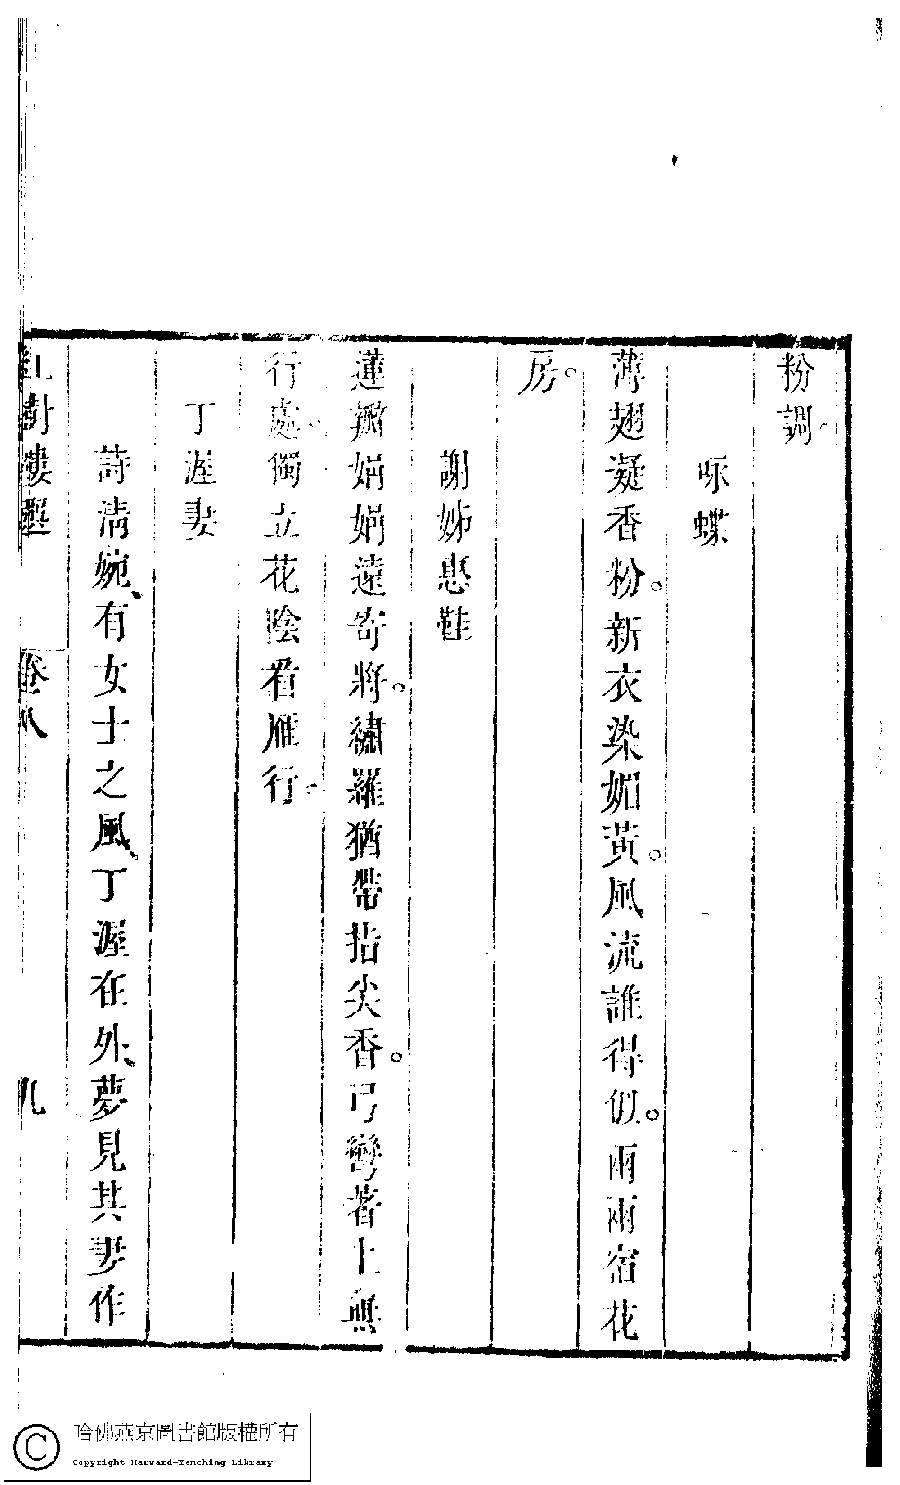 粉調。
咏蝶
薄翅凝香粉。新衣染媚黃。風流誰得似。兩兩宿花
房。
謝姊惠鞋
蓮瓣娟娟遠寄將。繡羅猶帶指尖香。弓彎著上無
行處。獨立花陰看雁行。
丁渥妻
詩清婉、有女士之風。丁渥在外、夢見其妻作
紅樹樓選 卷八 九
哈佛燕京圖書館版權所有
Copyright Harvard-Yenching Library